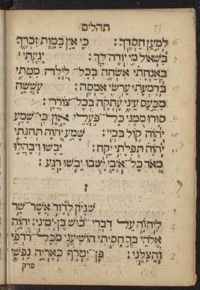 תהלים
לְמַעַן חַסְדֶּךָ: כִּי אֵין בַּמָּוֶת זִכְרֶךָ
בִּשְׁאוֹל מִי יוֹדֶה לָּךְ: יָגַעְתִּי
בְּאַנְחָתִי אַשְׂחֶה בְכָל־לַיְלָה מִטָּתִי
בְּדִמְעָתִי עַרְשִׂי אַמְסֶה: עָשְׁשָׁה
מִכַּעַס עֵינִי עָתְקָה בְּכָל־צוֹרְרָי:
סוּרוּ מִמֶּנִּי כָּל־פֹּעֲלֵי אָוֶן כִּי־שָׁמַע
יְהוָה קוֹל בִּכְיִי: שָׁמַע יְהוָה תְּחִנָּתִי
יְהוָה תְּפִלָּתִי יִקָּח: יֵבֹשׁוּ וְיִבָּהֲלוּ
מְאֹד כָּל־אֹיְבָי יָשֻׁבוּ יֵבֹשׁוּ רָגַע:
ז
שִׁגָּיוֹן לְדָוִד אֲשֶׁר־שָׁר
לַיהוָה עַל־דִּבְרֵי־כוּשׁ בֶּן־יְמִינִי: יְהוָה
אֱלֹהַי בְּךָ חָסִיתִי הוֹשִׁיעֵנִי מִכָּל־רֹדְפַי
וְהַצִּילֵנִי: פֶּן־יִטְרֹף כְּאַרְיֵה נַפְשִׁי
פרק